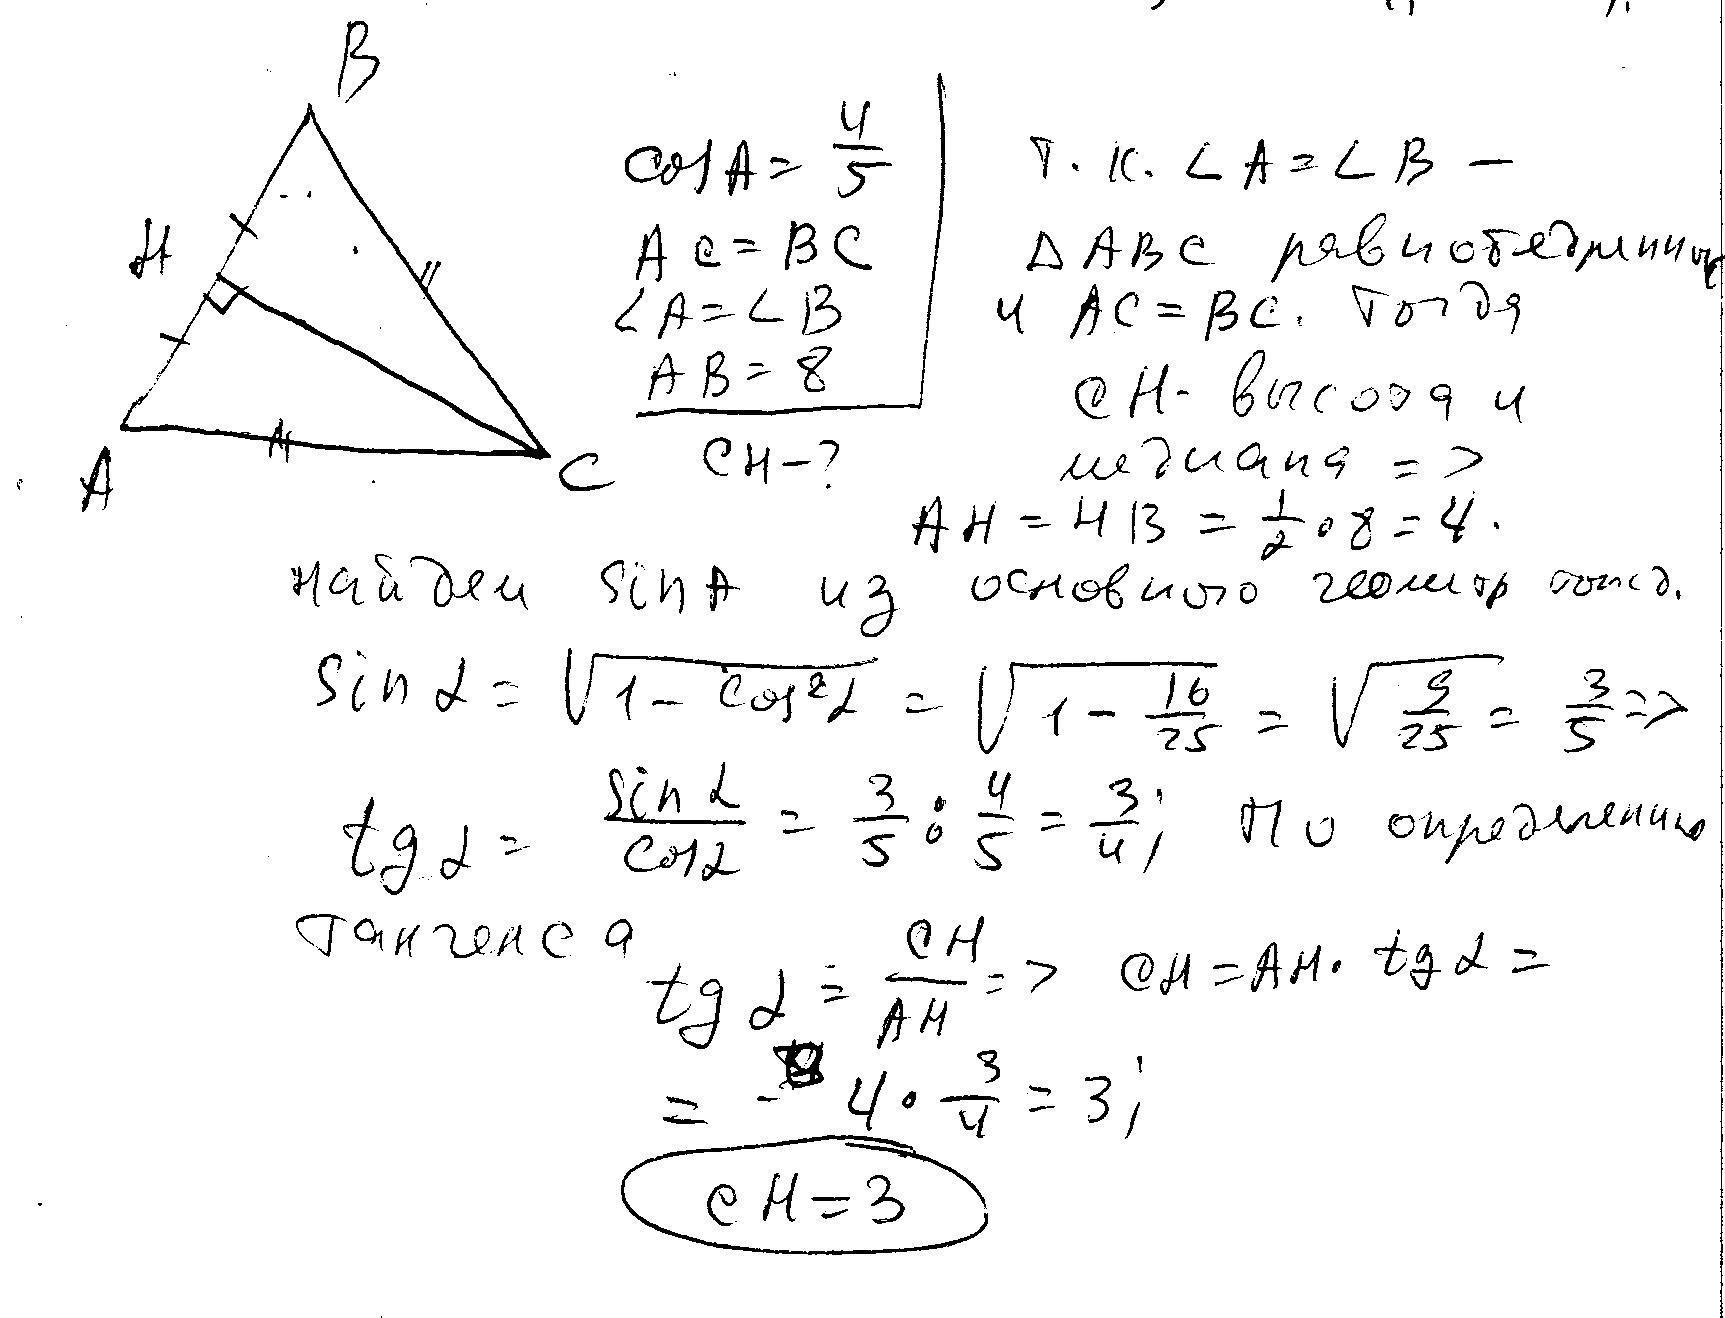 B
H
A
C
cosA = 4/5
AC = BC
∠A = ∠B
AB = 8
CH - ?
т.к. ∠A = ∠B -
ΔABC равнобедренный
и AC = BC. Тогда
CH - высота и
медиана =>
AH = HB = 1/2 · 8 = 4.
найдем sinA из основного геометр тожд.
sin α = √(1 - cos²α) = √(1 - 16/25) = √(9/25) = 3/5 =>
tg α = sin α / cos α = 3/5 : 4/5 = 3/4; По определению
тангенса
tg α = CH/AH => CH = AH · tg α =
= 4 · 3/4 = 3;
CH = 3